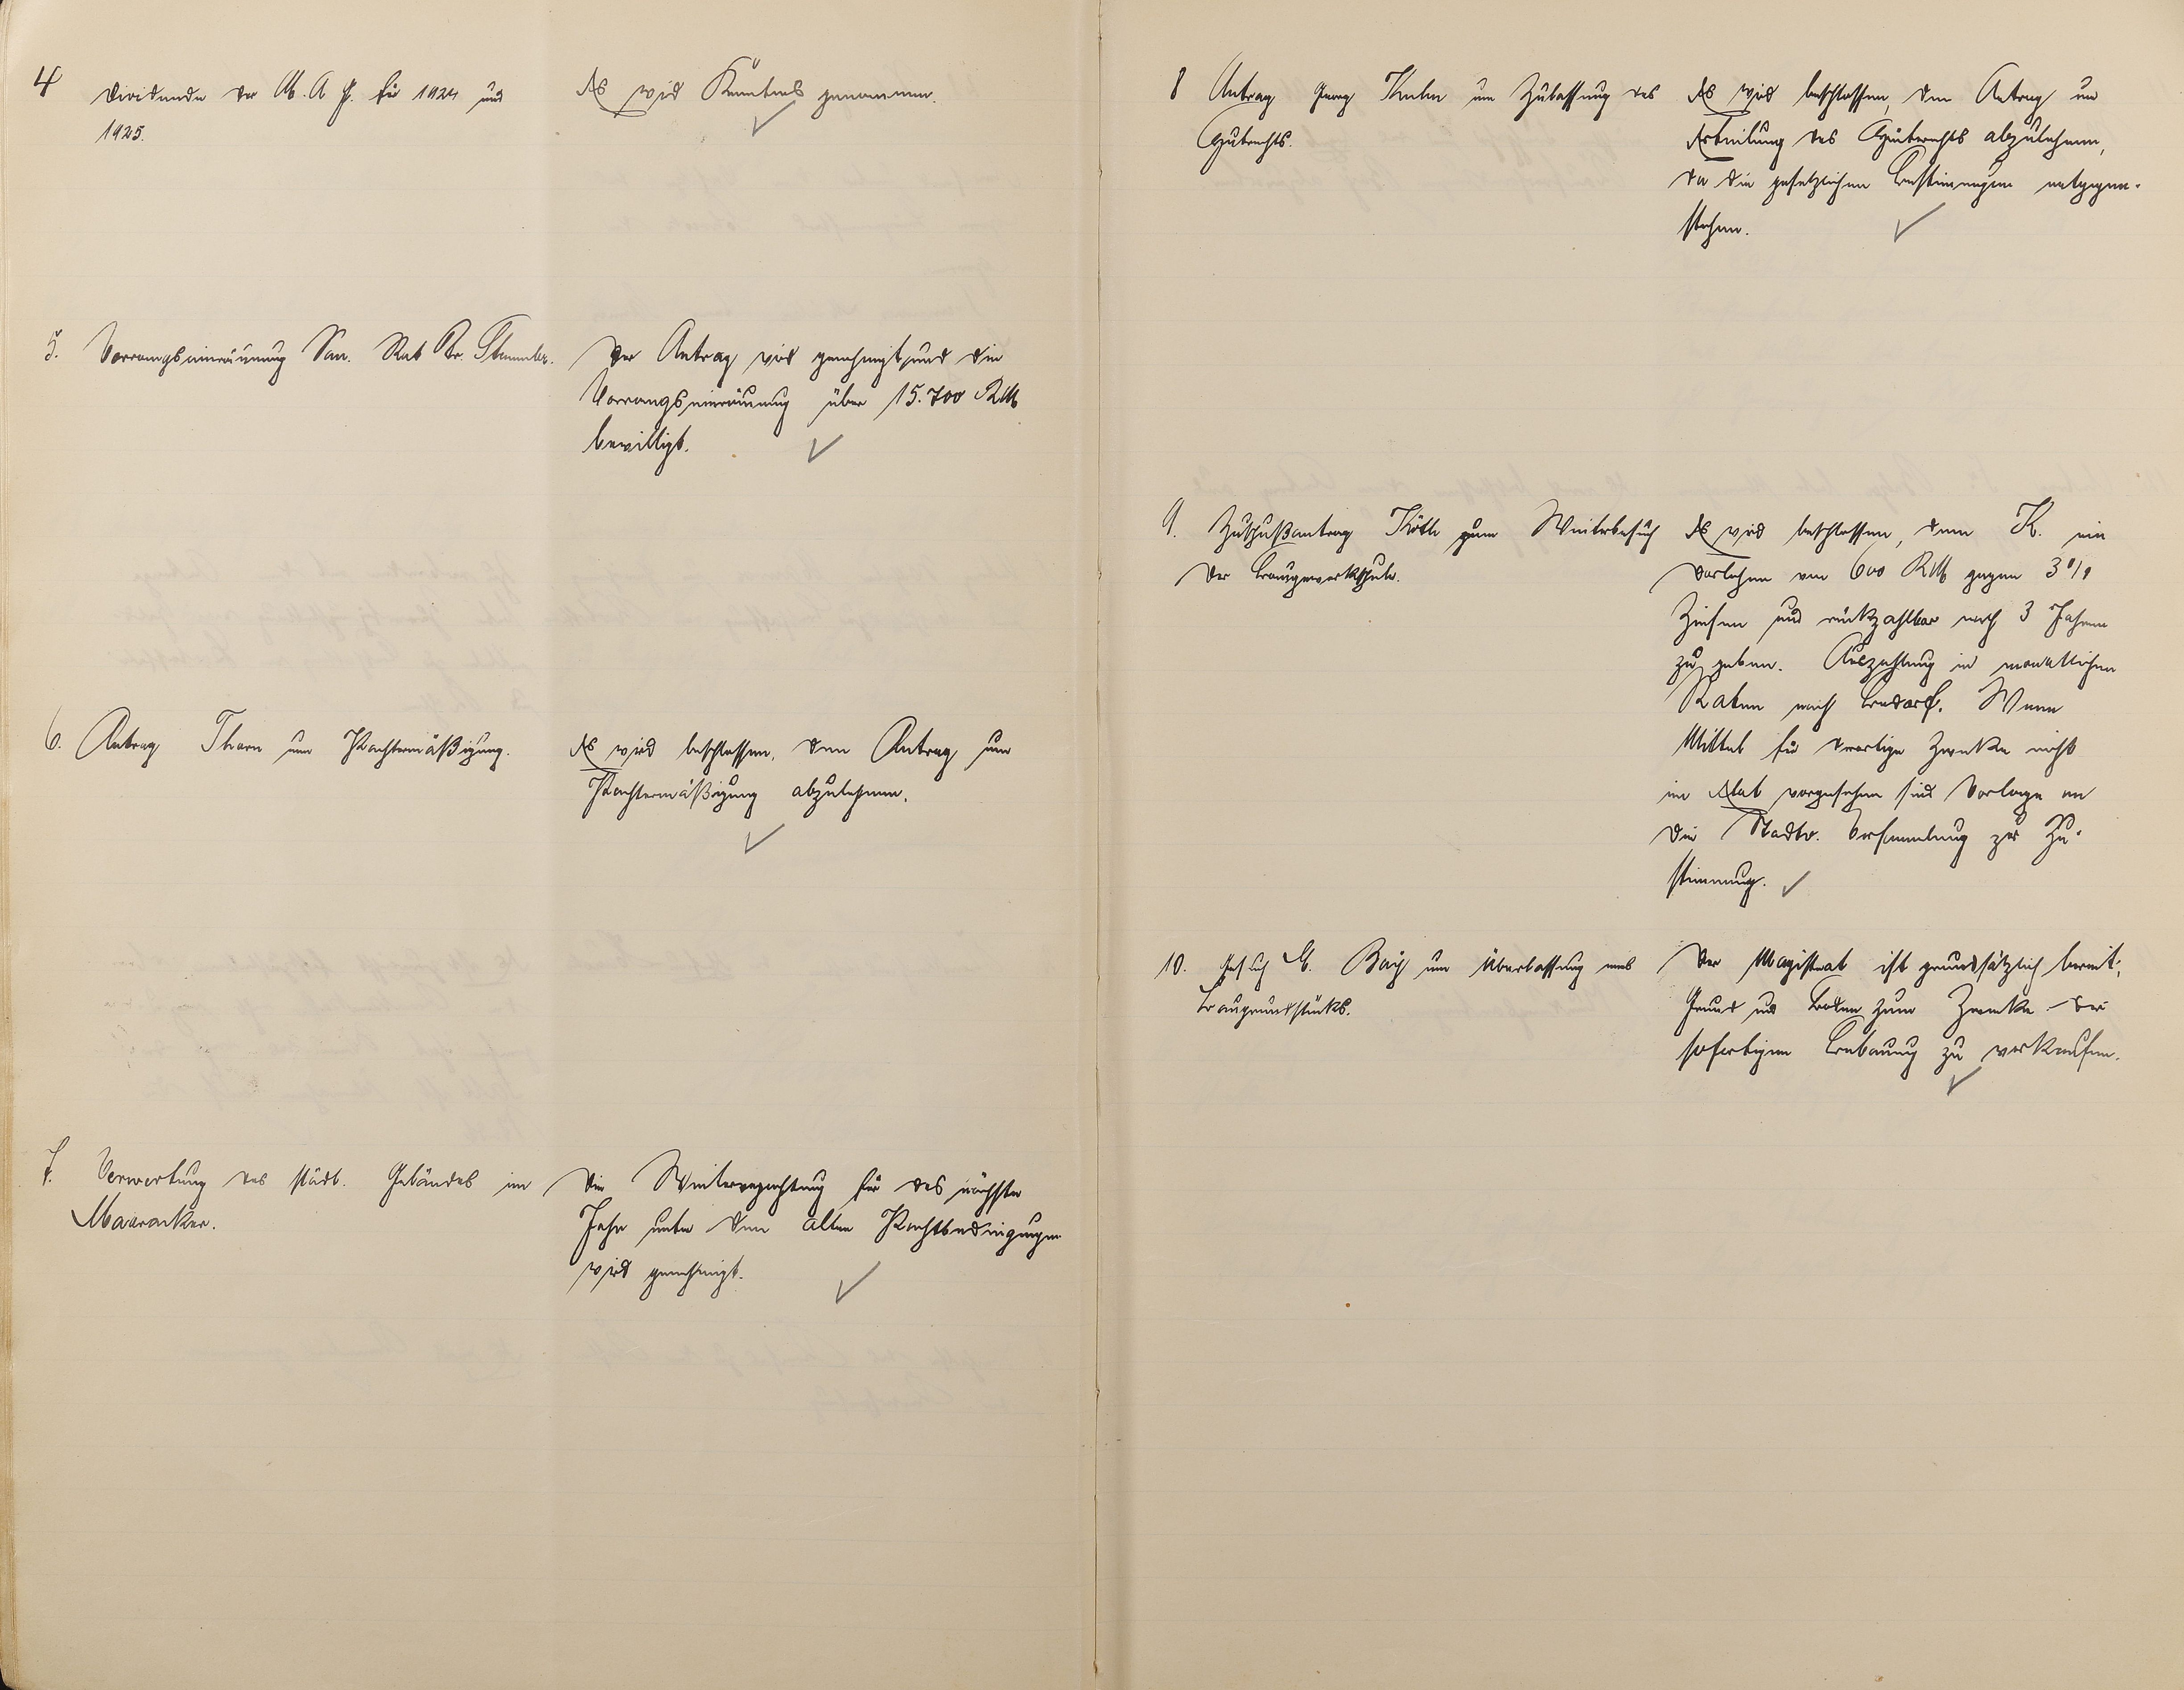 4 Dividende der M. A. G. für 1924 und
1925.
Es wird Kenntnis genommen.
5. Vorrangseinräumung San. Rat Dr. Stemmler.
Der Antrag wird genehmigt und die
Vorrangseinräumung über 15.700 RM
bewilligt.
6. Antrag Thorn um Pachtermäßigung.
Es wird beschlossen, den Antrag um
Pachtermäßigung abzulehnen.
7. Verwertung des städt. Gebändes im
Maaracker.
Die Weiterverpachtung für das nächste
Jahr unter den alten Pachtbedingungen
wird genehmigt.
8 Antrag Georg um Zulassung des
Es wird beschlossen, den Antrag um
Erteilung des abzulehnen,
da die gesetzlichen Bestimmungen entgegen-
stehen.
9. Zuschußantrag zum Weiterbesuch
der Baugewerkschule.
Es wird beschlossen, dem K. ein
Darlehen von 600 RM gegen 3%
Zinsen und rückzahlbar nach 3 Jahren
zu geben. Auszahlung in monatlichen
Raten nach Bedarf. Wenn
Mittel für derartige Zwecke nicht
im Etat vorgesehen sind Vorlage an
die Stadtv. Versammlung zur Zu-
stimmung.
10. Gesuch um Überlassung eines
Baugrundstücks.
Der Magistrat ist grundsätzlich bereit,
Grund und Boden zum Zwecke der
sofortigen Bebauung zu verkaufen.